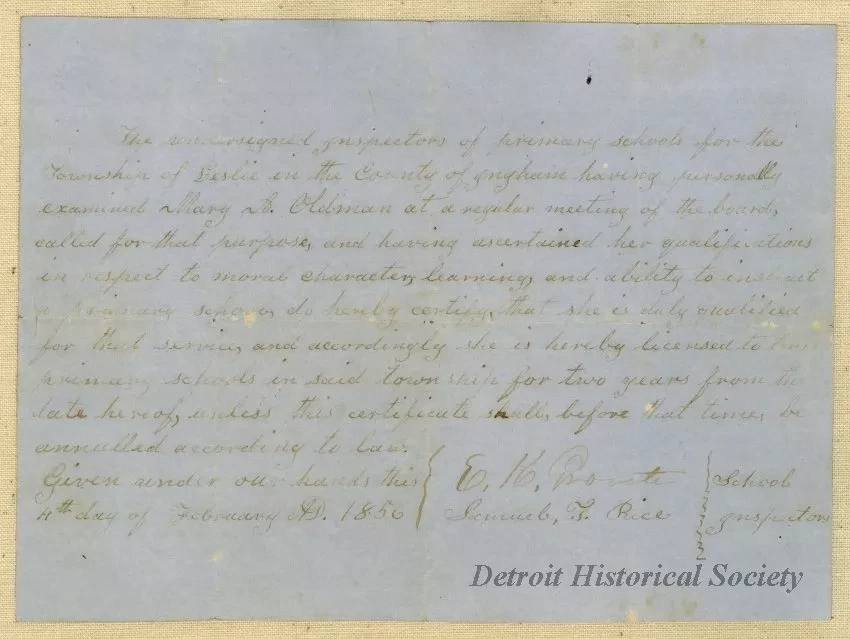 The undersigned Inspectors of primary schools for the
Township of Leslie in the County of Ingham having personally
examined Mary A. Oldman at a regular meeting of the board,
called for that purpose, and having ascertained her qualifications
in respect to moral character, learning, and ability to instruct
a primary school, do hereby certify, that she is duly qualified
for that service, and accordingly she is hereby licensed to
primary schools in said township for two years from the
date hereof, unless this certificate shall, before that time, be
annulled according to law.
Given under our hands this
4th day of February AD. 1856
E. K.
Samuel, T. Rice
School
Inspectors
Detroit Historical Society